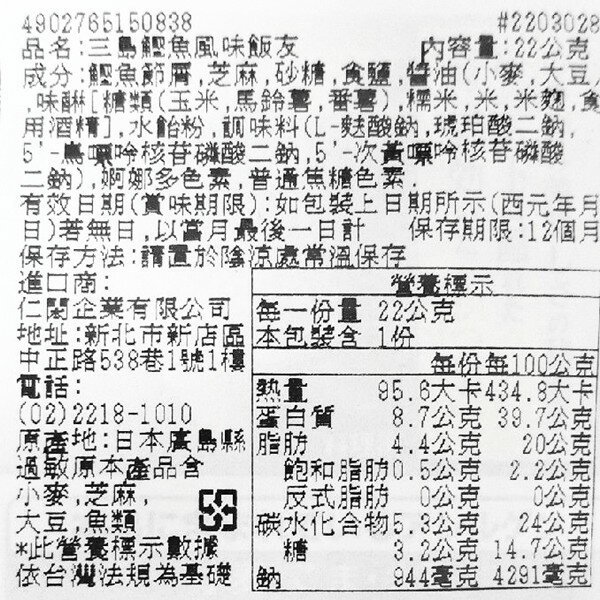 4902765150838 #2203028
品名:三島鰹魚風味飯友 內容量:22公克
成分:鰹魚節屑,芝麻,砂糖,食鹽,醬油(小麥,大豆)
,味醂[糖類(玉米,馬鈴薯,番薯),糯米,米,米麴,食
用酒精],水飴粉,調味料(L-麩酸鈉,琥珀酸二鈉,
5'-鳥嘌呤核苷磷酸二鈉,5'-次黃嘌呤核苷磷酸
二鈉),婀娜多色素,普通焦糖色素.
有效日期(賞味期限):如包裝上日期所示(西元年月
日)若無日,以當月最後一日計 保存期限:12個月
保存方法:請置於陰涼處常溫保存
進口商:
仁閎企業有限公司
地址:新北市新店區
中正路538巷1號1樓
電話:
(02)2218-1010
原產地:日本廣島縣
過敏原本產品含
小麥,芝麻,
大豆,魚類
*此營養標示數據
依台灣法規為基礎
營養標示
每一份量 22公克
本包裝含 1份
每份 每100公克
熱量 95.6大卡 434.8大卡
蛋白質 8.7公克 39.7公克
脂肪 4.4公克 20公克
飽和脂肪 0.5公克 2.2公克
反式脂肪 0公克 0公克
碳水化合物 5.3公克 24公克
糖 3.2公克 14.7公克
鈉 944毫克 4291毫克